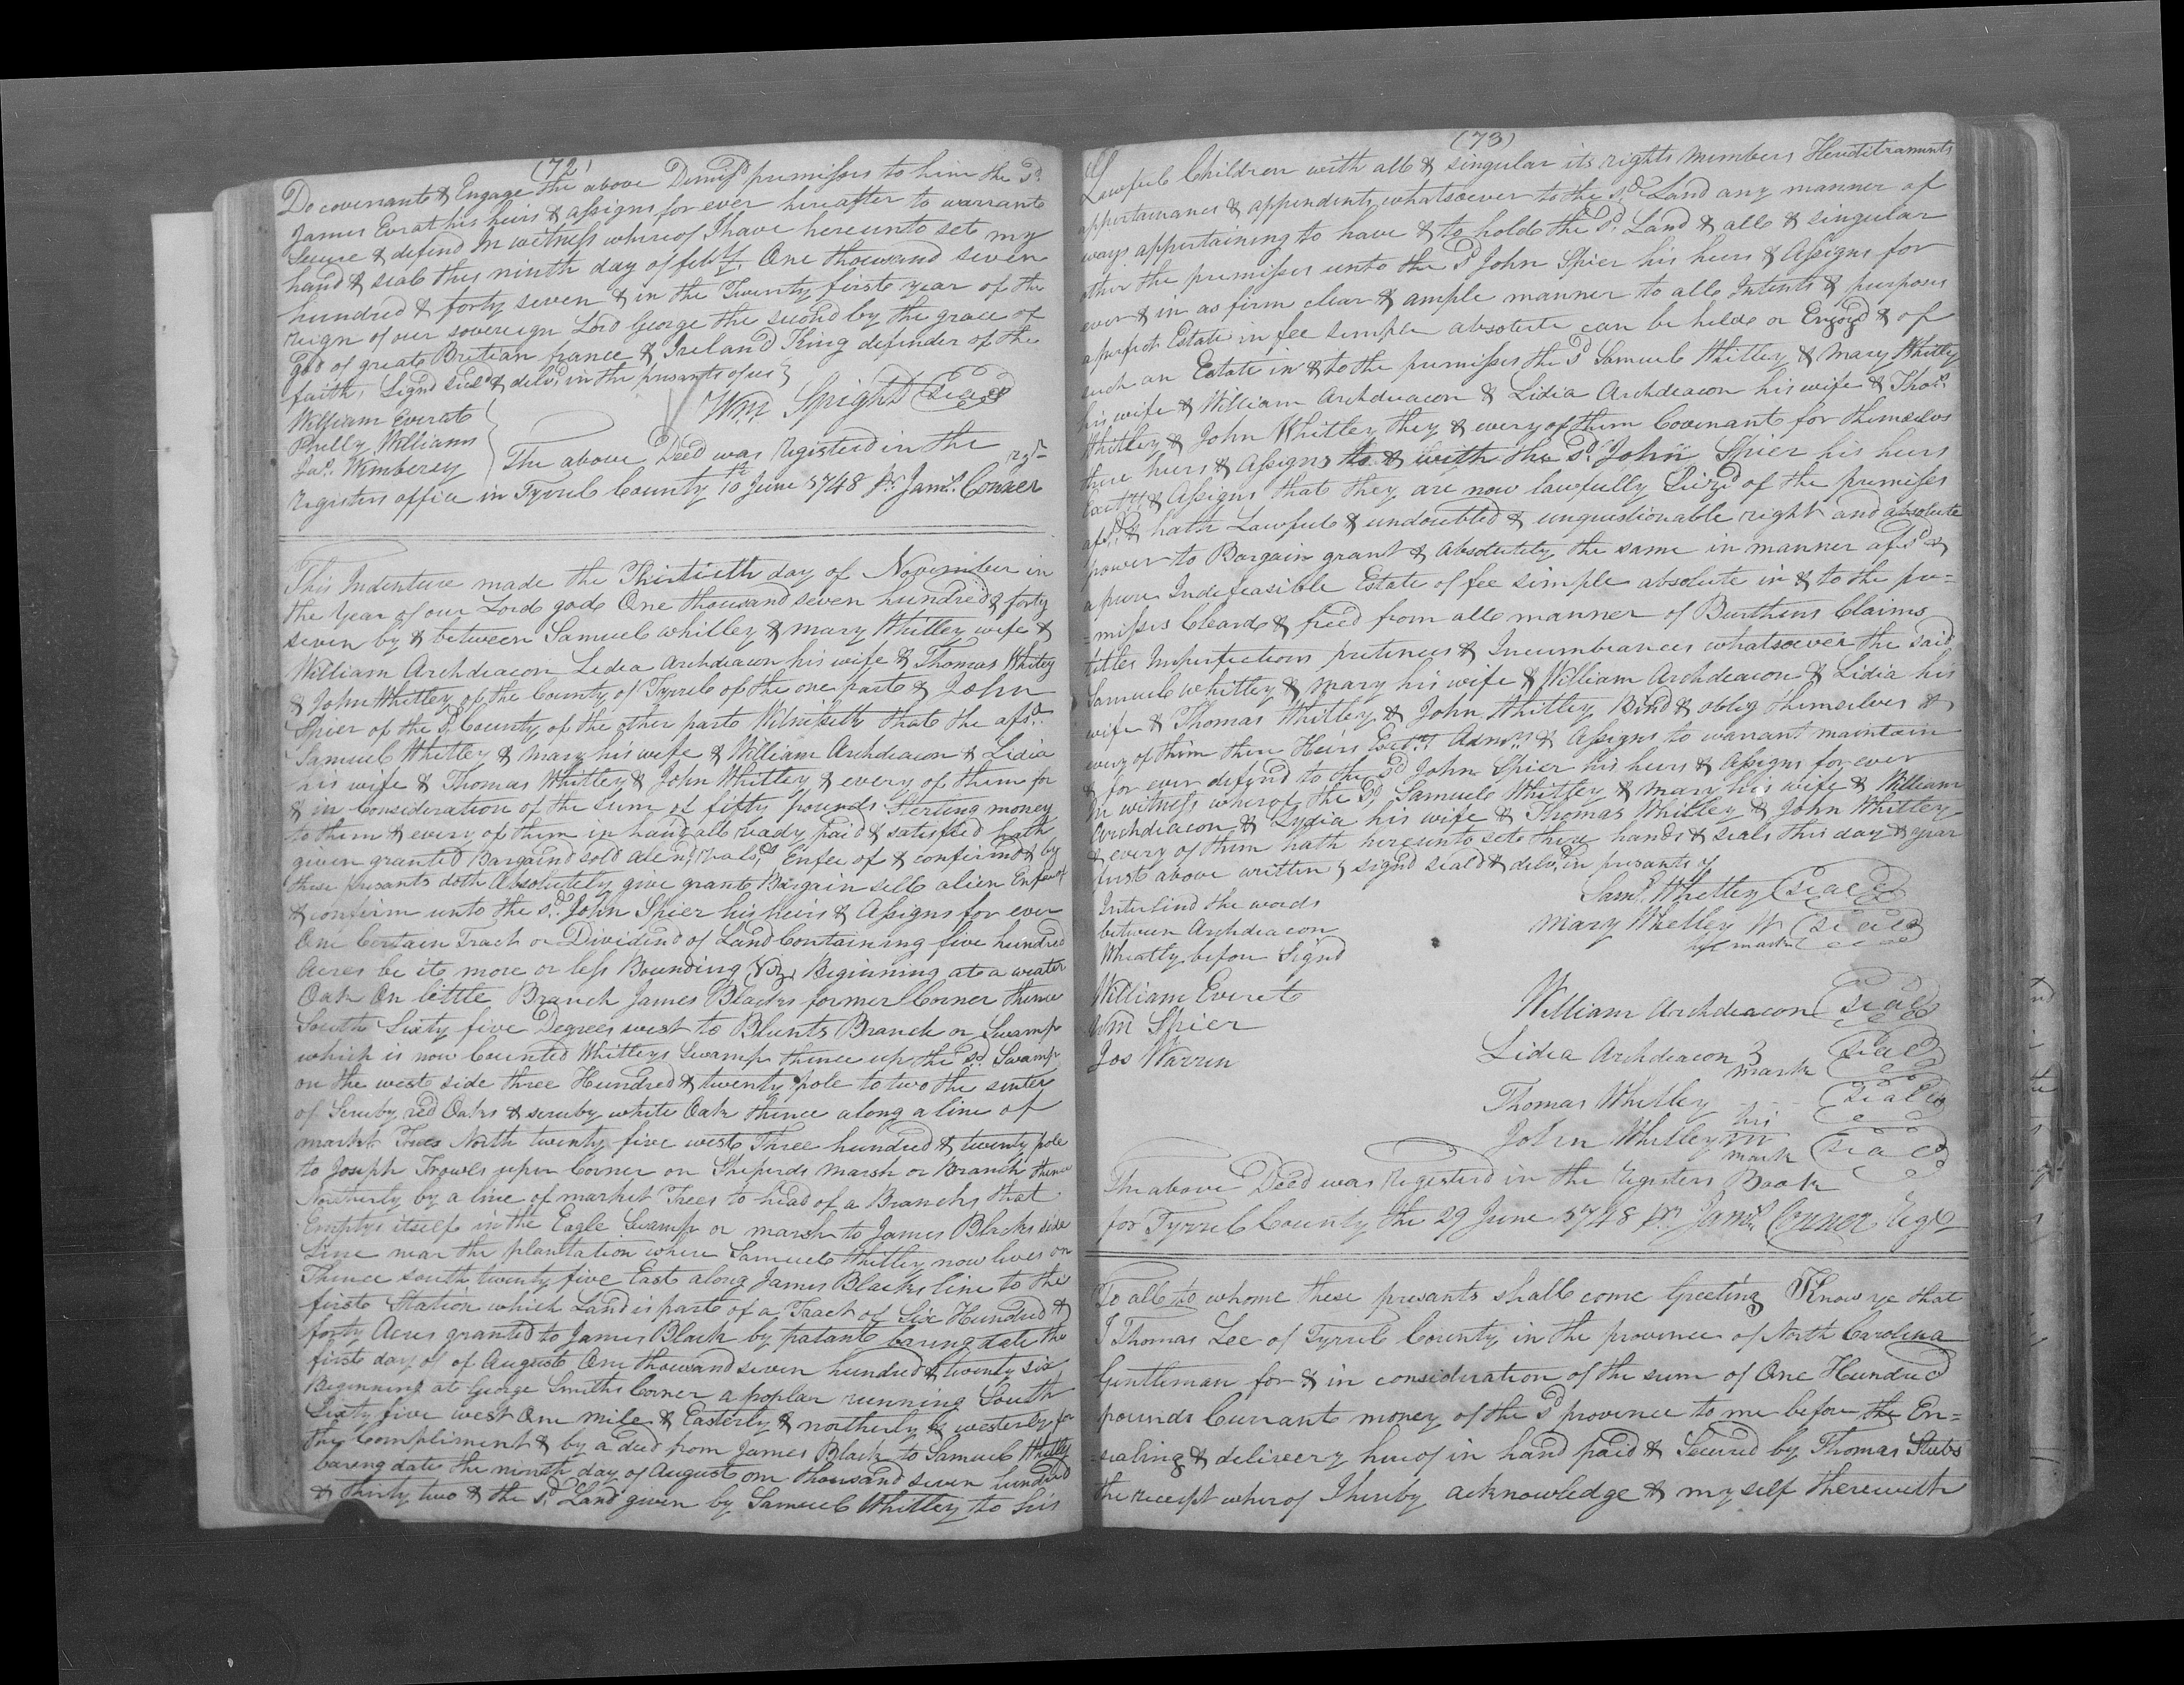 (72)
Do covenant & Engage the above Demisd premisses to him the sd
James Evrat his heirs & assigns for ever hereafter to warrant
Secure & defend In witness whereof I have hereunto set my
hand & seal this ninth day of One thousand seven
hundred & forty seven & in the Twenty first year of the
reign of our sovereign Lord George the second by the grace of
God of great Britian france & Ireland King defender of the
faith, Signd seald & delivd in the presants of us
William Everat
Wm Spight Seal
Philly Williams
Jas. Wimberey
The above Deed was registerd in the
registers office in Tyrrel County 10th June 1748 pr. Jams. Conner
This Indenture made the Thirtieth day of November in
the year of our Lord god One thousand seven hundred & forty
seven by & between Samuel whitley & mary Whitley wife &
William Archdeacon Lidia Archdeacon his wife & Thomas Whitey
& John Whitley of the County of Tyrrel of the one part & John
Spier of the sd County of the other part Witnesseth that the afsd.
Samuel Whitley & mary his wife & William Archdeacon & Lidia
his wife & Thomas Whitley & John Whitley & every of them for
& in Consideration of the sum of fifty pounds Sterling money
to them & every of them in hand all ready paid & satisfied hath
given granted Bargaind sold aliend Enfeeof & confirmd & by
these presants doth Absolutely give grant Bargain sell alien Enfeof
& confirm unto the sd. John Spier his heirs & Assigns for ever
One Certain Tract or Dividend of Land Containing five hundred
Acres be it more or less Bounding Viz. Beginning at a water
Oak On little Branch James Blacks former Corner thence
South Sixty five Degrees west to Blunts Branch or Swamp
which is now Counted Whitleys Swamp thence up the sd Swamp
on the west side three Hundred & twenty pole to two the sentey
of Scruby red Oaks & scruby white Oak thence along a line of
markt Trees North twenty five west Three hundred & twenty pole
to Joseph Trowls upper Corner on Sheperds marsh or Branch thence
Northerly by a line of markit Trees to head of a Branchs that
Emptys itself in the Eagle Swamp or marsh to James Blacks side
Line near the plantation where Samuel Whitley now lives on
Thence south twenty five East along James Blacks line to the
first Station which Land is part of a Tract of Six Hundred &
forty Acres granted to James Black by patant baring date the
first day of of August One thousand seven hundred & twenty six
Beginning at George Smiths Corner a poplar running South
Sixty five west One mile & Easterly & northerly & westerly for
the Compliment & by a deed from James Black to Samuel Whitley
baring date the ninth day of August one thousand seven hundred
& thirty two & the sd. Land given by Samuel Whitley to his
(73)
Lawful Children with all & singular its rights members Hereditraments
appertainances & appendents whatsoever to the sd Land any manner of
ways appertaining to have & to hold the sd. Land & all & singular
other the premisses unto the sd John Spier his heirs & Assigns for
ever & in as firm clear & ample manner to all Intents & purposes
a perfect Estate in fee simple absolute can be held or Enjoyd & of
such an Estate in & to the premisses the sd Samuel Whitley & Mary Whitly
his wife & William Archdeacon & Lidia Archdeacon his wife & Thos.
Whitley & John Whitley they & every of them Covenant for themselves
there heirs & Assigns to & with the sd. John Spier his heirs
& Assigns that they are now lawfully Siezd of the premises
afsd. & hath Lawful & undoubted & unquestionable right and absolute
power to Bargain grant & Absolutely the same in manner afsd &
a pure Indefeasible Estate of fee simple absolute in & to the pre=
=misses Cleard & freed from all manner of Burthens Claims
titles Imperfections pretences & Incumbrances whatsoever the said
Samuel Whitley & mary his wife & William Archdeacon & Lidia his
wife & Thomas Whitley & John Whitley Bind & oblig themselves &
every of them there Heirs Admrs & Assigns to warrant maintain
& for ever defend to the sd John Spier his heirs & Assigns for ever
In witness wherof the sd Samuel Whitley & mary his wife & William
Archdeacon & Lydia his wife & Thomas Whitley & John Whitley
& every of them hath hereunto sete there hands & seals this day & year
first above written, signd seald & delivd in presants of
Saml. Whitley Seal
Interlind the words
between Archdeacon
Mary Whetley Seal
mark
Wheatly before Signd
William Everet
William Archdeacon Seal
Wm Spier
Lidia Archdeacon 3 Seal
mark
Jos Warren
Thomas Whitley Seal
his
John Whitley Seal
mark
The above Deed was Registerd in the registers Book
for Tyrrel County the 29 June 1748 pr. Jams Conner Regr
To all to whome these presants shall come Greeting Know ye that
I Thomas Lee of Tyrrel County in the province of North Carolina
Gentleman for & in consideration of the sum of One Hundred
pounds Currant money of the sd province to me before the En=
=sealing & delivery hereof in hand paid & Secured by Thomas Stubs
the receipt wherof I hereby acknowledge & my self therewith